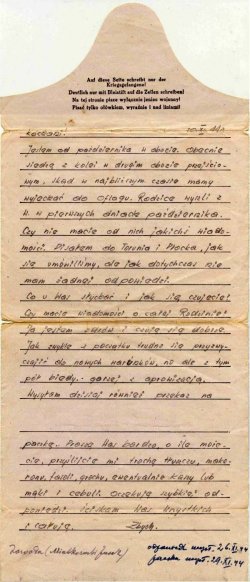 Auf diese Seite schreibt nur der
Kriegsgefangene!
Deutlich nur mit Bleistift auf die Zeilen schreiben!
Na tej stronie pisze wyłącznie jeniec wojenny!
Pisać tylko ołówkiem, wyraźnie i nad liniami!
10.XI.44r.
Kochani.
Jestem od października w obozie. Obecnie
siedzę z kolei w drugim obozie przejścio-
wym, skąd w najbliższym czasie mamy
wyjechać do oflagu. Rodzice wyszli z
W. w pierwszych dniach października.
Czy nie macie od nich jakichś wiado-
mości. Pisałem do Torunia i Płocka, jak
się umówiliśmy, ale jak dotychczas nie
mam żadnej odpowiedzi.
Co u Was słychać i jak się czujecie?
Czy macie wiadomości o całej Rodzinie?
Ja jestem zdrów i czuję się dobrze.
Jak zwykle z początku trudno się przyzwy-
czaić do nowych warunków, no ale z tym
pół biedy. gorzej z aprowizacją.
Wysyłam dzisiaj również przekaz na
paczkę. Proszę Was bardzo, o ile może-
cie, przyślijcie mi trochę tłuszczu, maka-
ronu, fasoli, grochu, ewentualnie kaszy lub
mąki i cebuli. Oczekuję szybkiej od-
powiedzi. Ściskam Was wszystkich
i całuję. Zbyszek
wysł. 26.XI.44
wysł. 29.XI.44